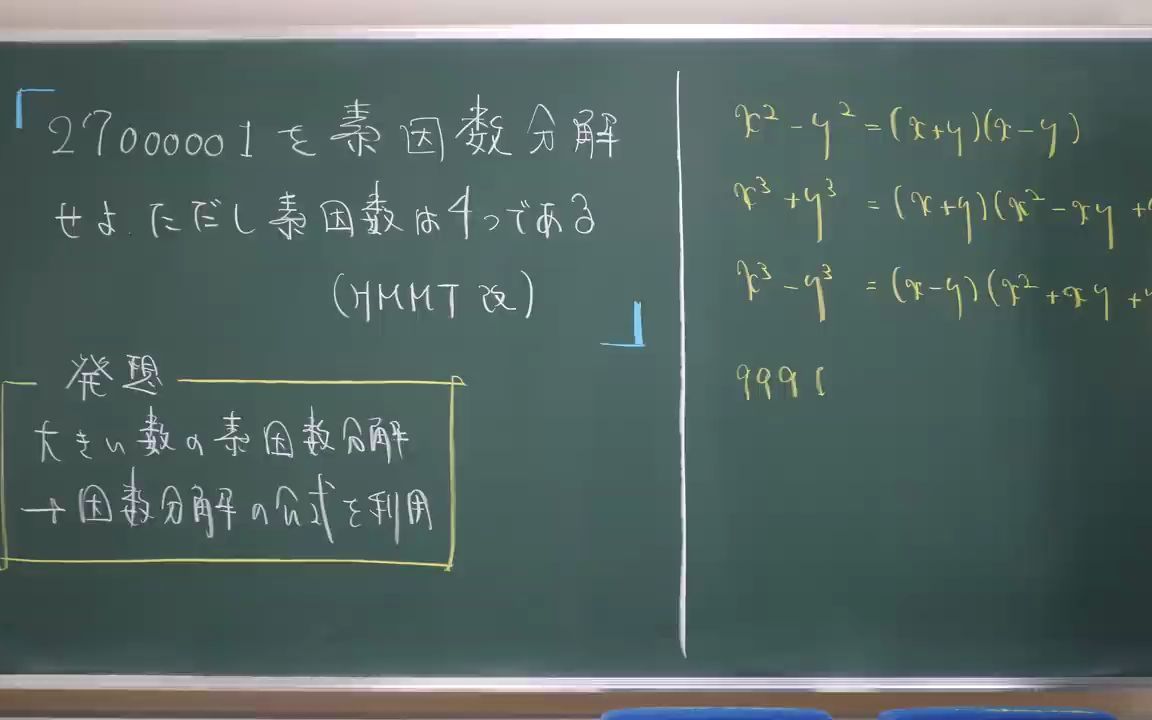 「2700001を素因数分解
せよ.ただし素因数は4つである
(HMMT 改)」
発想
大きい数の素因数分解
→因数分解の公式を利用
x²-y²=(x+y)(x-y)
x³+y³ =(x+y)(x²-xy+
x³-y³ =(x-y)(x²+xy+
999